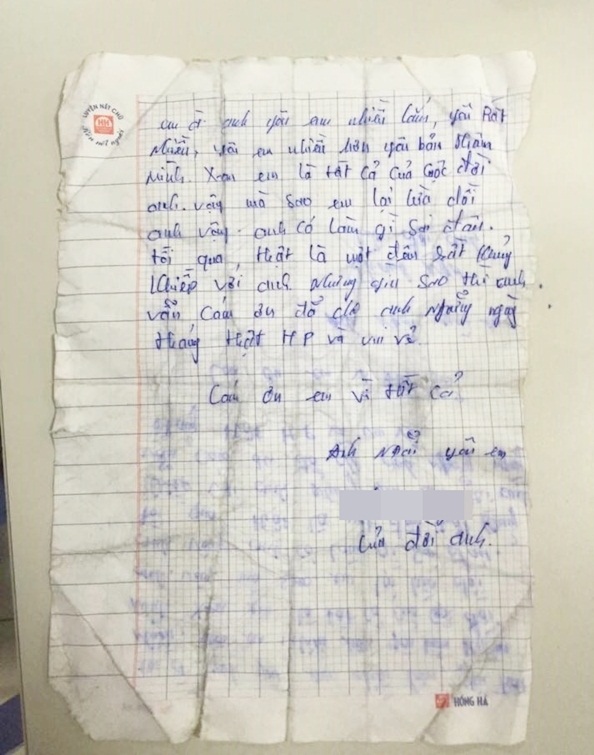 LUYỆN NÉT CHỮ
RÈN NẾT NGƯỜI
HH
em à anh yêu em nhiều lắm, yêu rất
nhiều, yêu em nhiều hơn yêu bản thân
mình. Xem em là tất cả của cuộc đời
anh. vậy mà sao em lại lừa dối
anh vậy. anh có làm gì sai đâu.
tối qua thật là một đêm rất khủng
khiếp với anh nhưng gìn sao thì anh
vẫn cám ơn đã cho anh những ngày
tháng thật HP và vui vẻ.
Cám ơn em vì tất cả
Anh Ngài yêu em
Của đời anh.
HỒNG HÀ